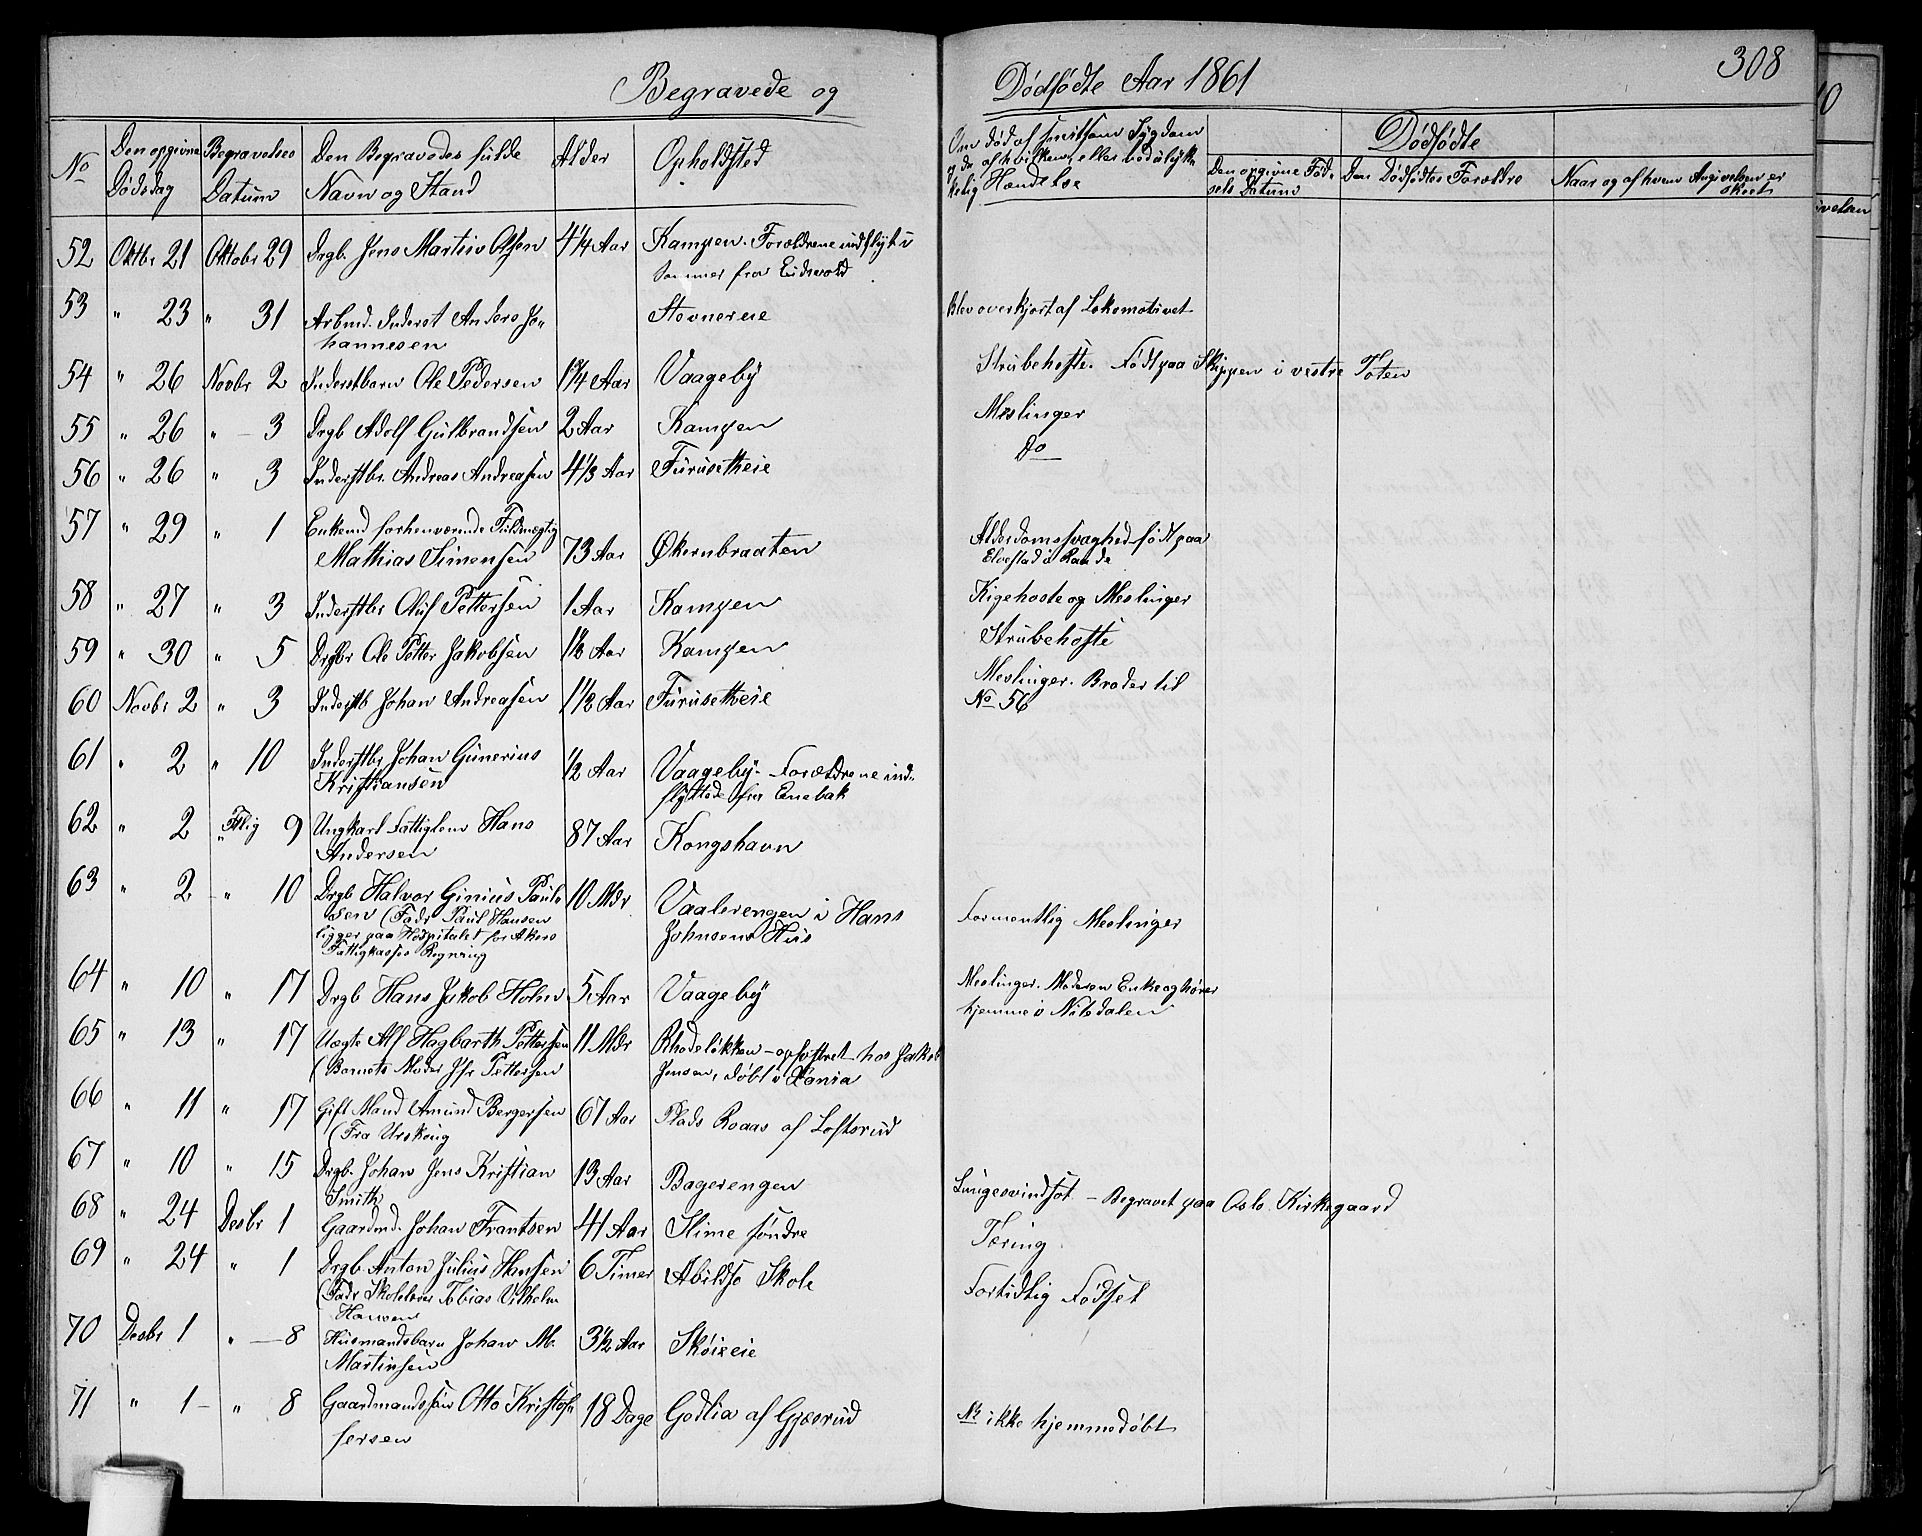 308
Begravede og Dødfødte Aar 1861
No
Den opgivne Dødsdag
Begravelses Datum
Den Begravedes fulde Navn og Stand
Alder
Opholdsted
Om død af smitsom Sygdom
og da af hvilken, eller ved ulykke
kelig Hændelse
Dødfødte
Den opgivne Fød-
sels Datum
Den Dødfødtes Forældre
Naar og af hvem Angivelsen er
skeet
52 Oktbr 21 Oktobr 29 Drgb. Jens Martin Olsen 4 1/4 Aar Kampen. Forældrene indflyt i
Sommer fra Eidsvold
53 " 23 " 31 Arbmd. Inderst Anders Jo-
hannesen Stovnereie Blev overkjørt af Lokomotivet
54 " 26 Novbr 2 Inderstbarn Ole Pedersen 1 3/4 Aar Vaageby Strubehoste. Født paa Skippen i vestre Toten
55 " 26 " 3 Drgb Adolf Gulbrandsen 2 Aar Kampen Meslinger
56 " 26 " 3 Inderstbr. Andreas Andreasen 4 1/3 Aar Furuseteie Do
57 " 29 " 1 Enkemd forhenværende Fuldmægtig
Mathias Simensen 73 Aar Økernbraaten Alderdomssvaghed født paa
Elvestad i Raade
58 " 27 " 3 Inderstbr Oluf Pettersen 1 Aar Kampen Kigehoste og Meslinger
59 " 30 " 5 Drgbr Ole Petter Jakobsen 1 1/2 Aar Kampen Strubehoste
60 Novbr 2 " 3 Inderstb Johan Andreasen 1 1/2 Aar Furuseteie Meslinger. Broder til
No 56
61 " 2 " 10 Inderstbr Johan Gunerius
Kristiansen 1/2 Aar Vaageby. Forældrene ind-
flyttede fra Enebak
62 " 2 " 9 Ungkarl Fattiglem Hans
Andersen 87 Aar Kongshavn
63 " 2 " 10 Drgb Halvor Ginius Paul-
sen (Fadr Paul Hansen
ligger paa Hospitalet for Akers
Fattigkasses Regning 10 Mdr Vaalerengen i Hans
Johnsens Hus Formentlig Meslinger
64 " 10 " 17 Drgb Hans Jakob Holm 5 Aar Vaageby Meslinger. Moderen Enke og hører
hjemme i Nitedalen
65 " 13 " 17 Uægte Alf Hagbarth Pettersen
(Barnets Moder Jfr Pettersen 11 Mdr Rhodeløkken - opfostret hos Jakob
Jensen, døbt i Xania
66 " 11 " 17 Gift Mand Amund Bergersen
(Fra Urskoug 67 Aar Plads Roaas af Loftsrud
67 " 10 " 15 Drgb. Johan Jens Kristian
Smith 13 Aar Bagerengen Lungesvindsot - Begravet paa Oslo Kirkegaard
68 " 24 Desbr 1 Gaardmd. Johan Frantsen 41 Aar Slime søndre Tæring
69 " 24 " 1 Drgb Anton Julius Hansen
(Fadr Skolelærer Tobias Vilhelm
Hansen 6 Timer Abildsø Skole Fortidlig Fødsel
70 Desbr 1 " 8 Husmandsbarn Johan M.
Martinsen 3 1/2 Aar Skøieneie
71 " 1 " 8 Gaardmandssøn Otto Kristof-
fersen 18 Dage Godlia af Gjøsrud NB ikke hjemmedøbt